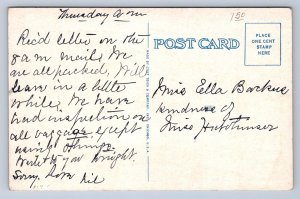 Thursday a.m.
150
Rec'd letter in the
8 a.m mail. We
are all packed. Will
leave in a little
while. We have
had inspection on
all baggage except
using things.
Write to you tonight.
Sorry.
POST CARD
PLACE
ONE CENT
STAMP
HERE
Miss Ella Backus
kindness of
Miss